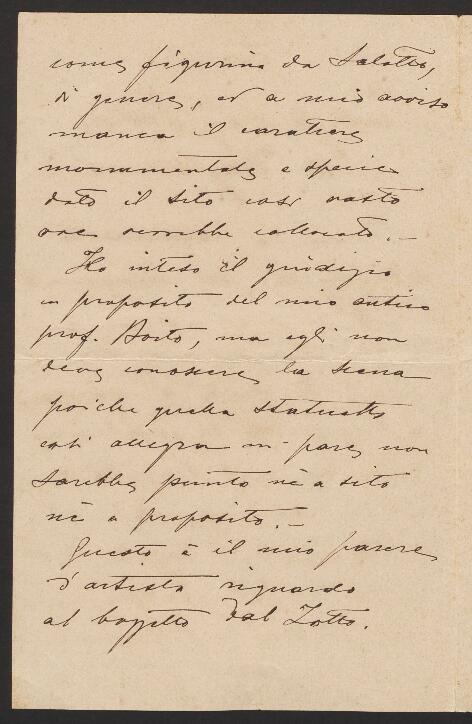 come figurina da Salotto,
di genere, ed a mio avviso
manca il carattere
monumentale e specie
dato il sito così vasto
ove verrebbe collocato. —
Ho inteso il giudizio
in proposito del mio antico
prof. Boito, ma egli non
deve conoscere la scena
poiche quella statuetta
così allegra mi pare non
sarebbe punto nè a sito
nè a proposito. —
Questo è il mio parere
d'artista riguardo
al bozzetto Dal Zotto.